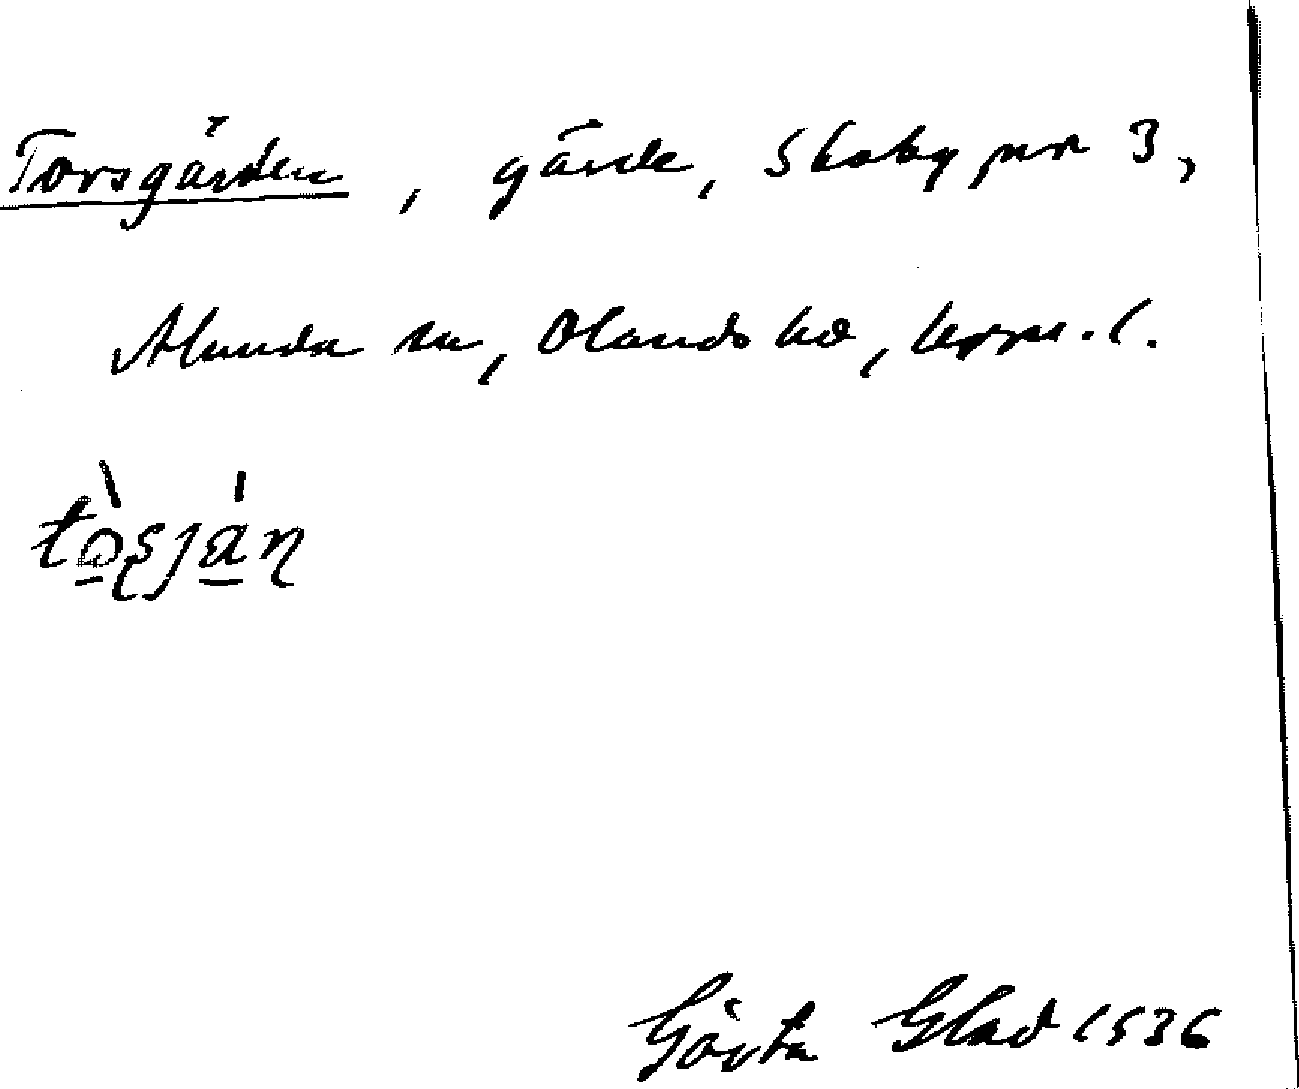 Torsgärden, gärde, Skoby nr 3,
Alunda sn, Olands hd, Upps. l.
tò̱ʂjá̱ɳ
Gösta Glad 1936